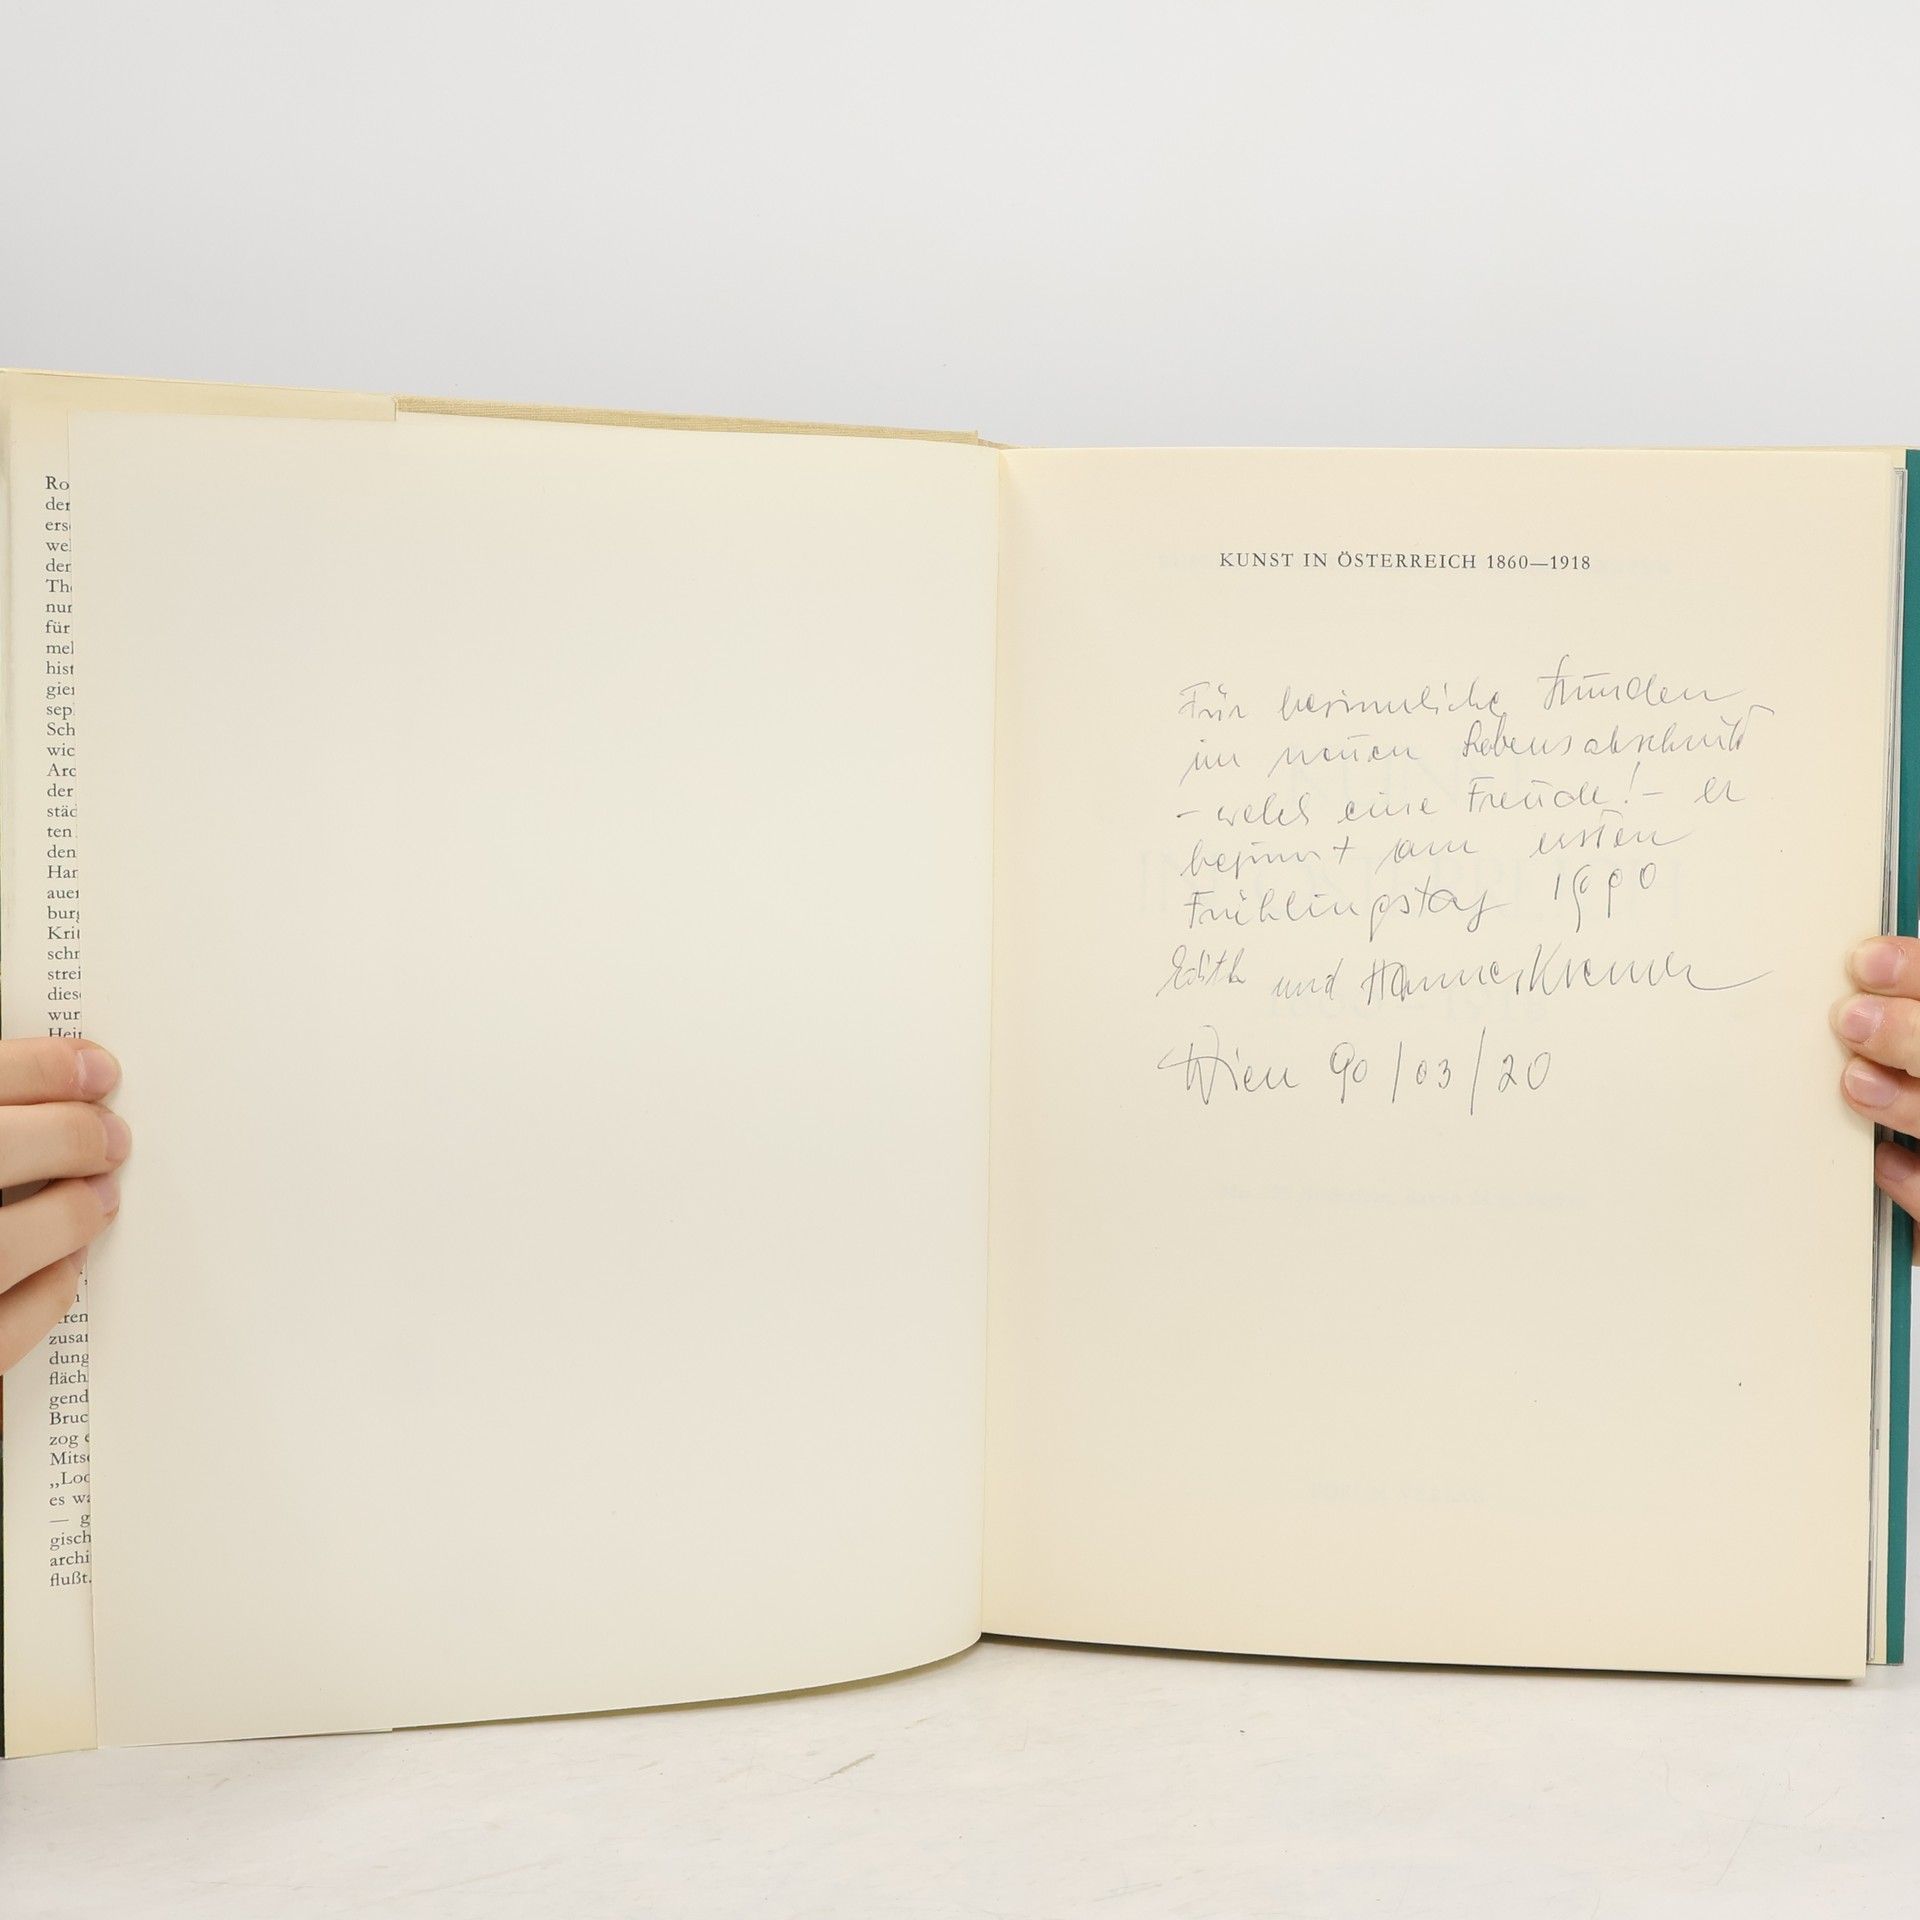 Ro
der
ers
wel
der
Th
nur
für
mel
hist
gier
sep
Sch
wic
Arc
der
städ
ten
den
Har
auer
burg
Krit
schr
strei
dies
wur
Hein
n
tren
zusar
dung
fläch
gend
Bruc
zog e
Mits
„Loo
es wa
— g
gisch
archi
flußt.
KUNST IN ÖSTERREICH 1860—1918
Für besinnliche Stunden
im neuen Lebensabschnitt
- welch eine Freude! - er
beginnt am ersten
Frühlingstag 1990
Edith und Hannes Kremer
Wien 90/03/20